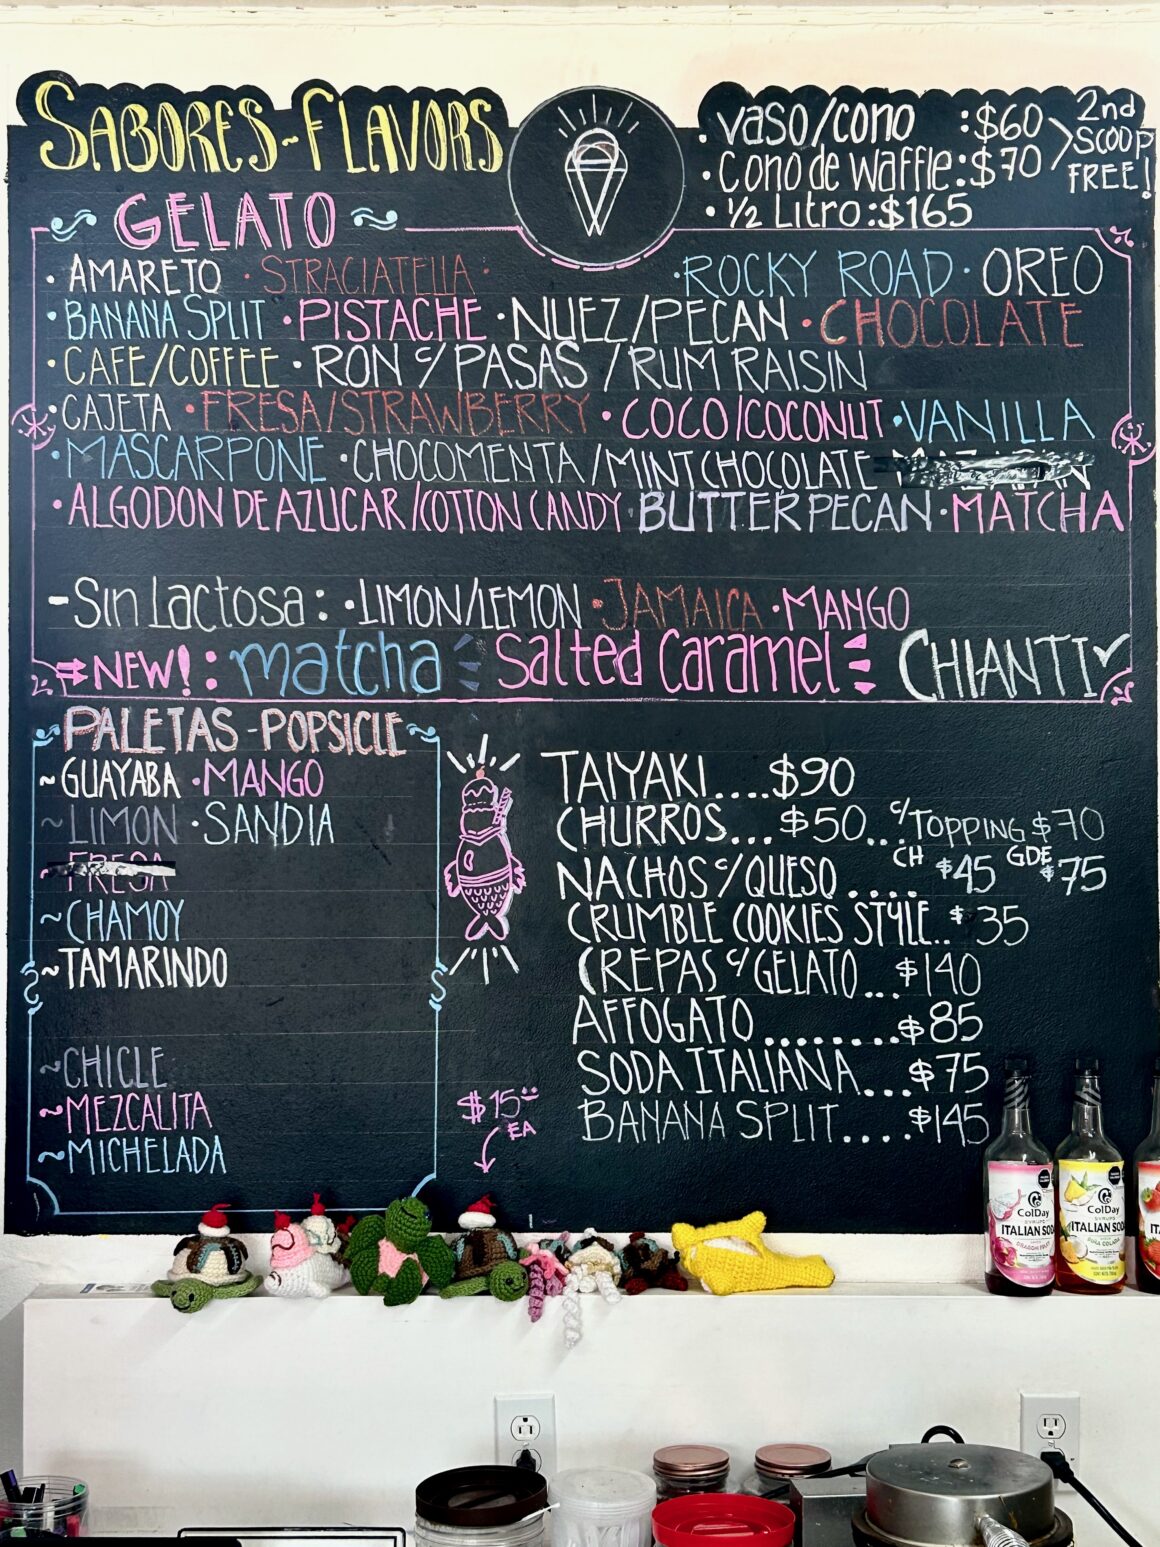 SABORES~FLAVORS
· VASO/CONO :$60
· CONO DE WAFFLE:$70
2nd SCOOP FREE!
· ½ LITRO:$165
GELATO
· AMARETO · STRACIATELLA · · ROCKY ROAD · OREO
· BANANA SPLIT · PISTACHE · NUEZ/PECAN · CHOCOLATE
· CAFE/COFFEE · RON c/PASAS /RUM RAISIN
· CAJETA · FRESA/STRAWBERRY · COCO/COCONUT · VANILLA
· MASCARPONE · CHOCOMENTA/MINT CHOCOLATE
· ALGODON DE AZUCAR/COTTON CANDY · BUTTER PECAN · MATCHA
- Sin Lactosa: · LIMON/LEMON · JAMAICA · MANGO
⇒ NEW! : matcha Salted Caramel CHIANTI✓
PALETAS-POPSICLE
~GUAYABA · MANGO
~LIMON · SANDIA
FRESA
~CHAMOY
~TAMARINDO
~CHICLE
~MEZCALITA
~MICHELADA
$15.00 EA
TAIYAKI....$90
CHURROS...$50..c/TOPPING $70
NACHOS c/QUESO .... CH $45 GDE $75
CRUMBLE COOKIES STYLE..$35
CREPAS c/GELATO...$140
AFFOGATO.........$85
SODA ITALIANA...$75
BANANA SPLIT....$145
ColDay
SYRUPS
ITALIAN SODA
DRAGON FRUIT
ColDay
SYRUPS
ITALIAN SODA
PIÑA COLADA